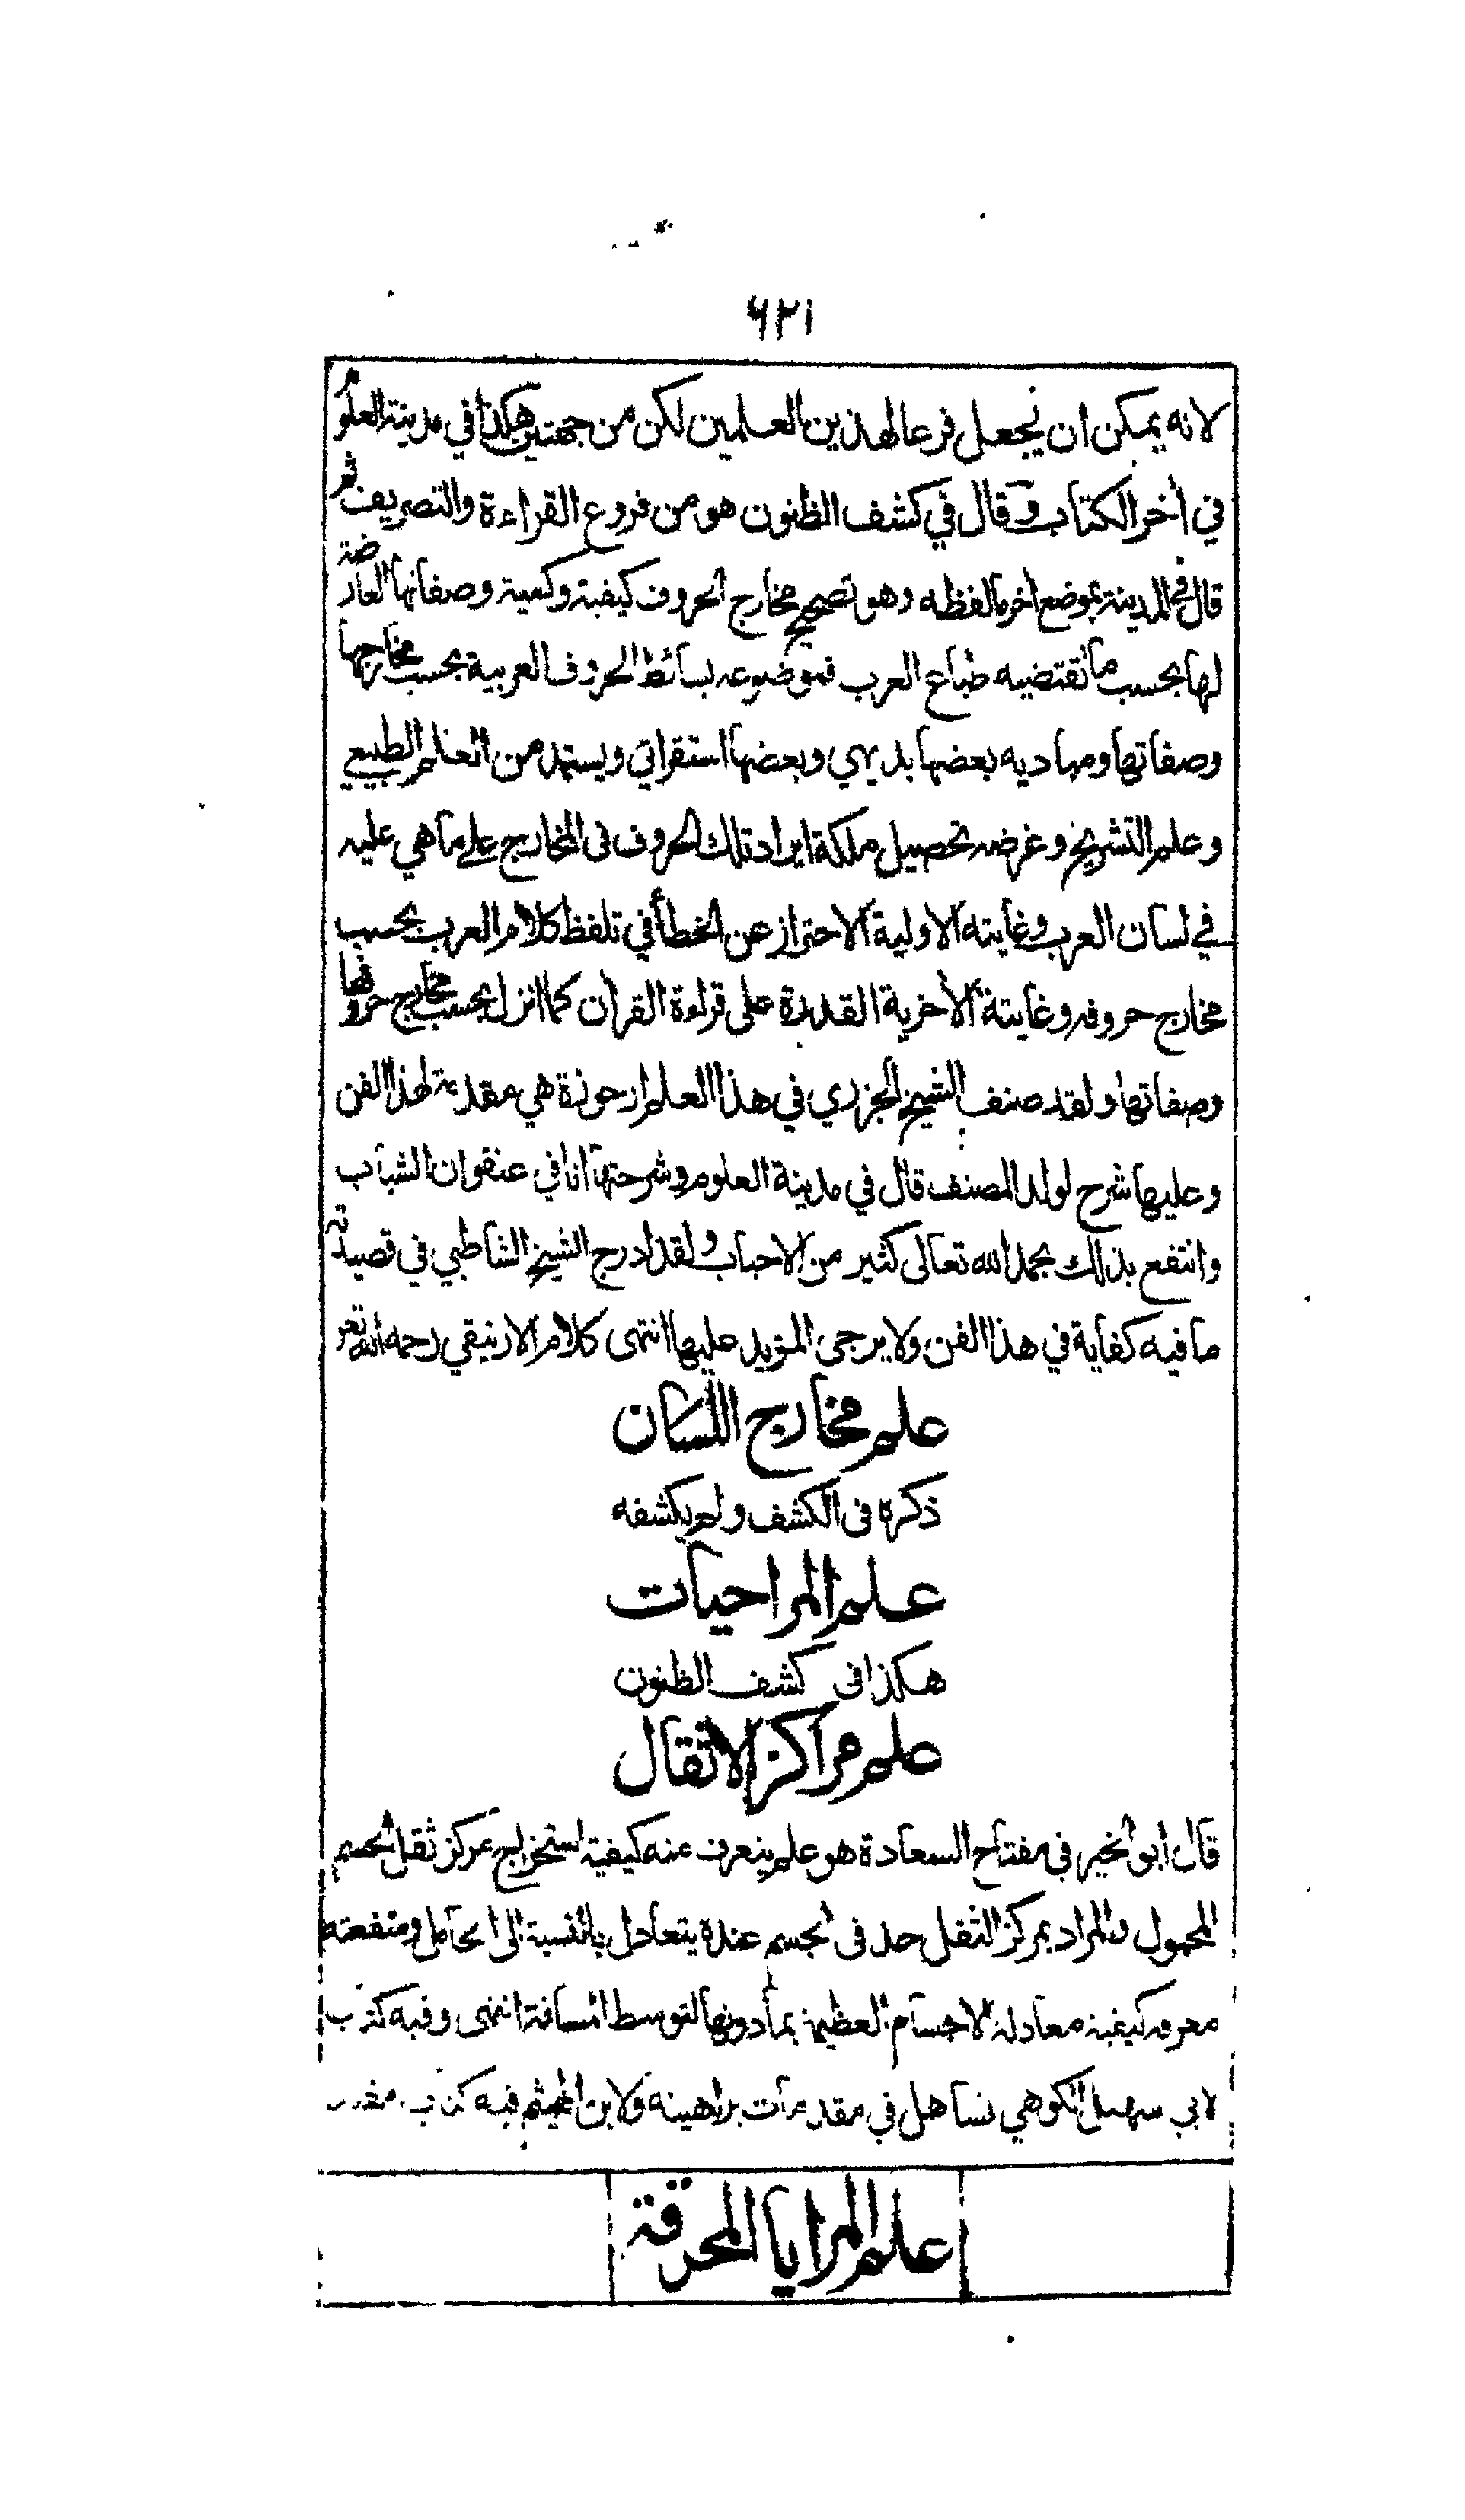 ٦٢١
لانه يمكن ان نجعل فرعا لهذين العلمين لكن من جهتين هكذا في مدينة العلوم
في أخر الكتاب وقال في كشف الظنون هو من فروع القراءة والتصريف ثم
قال في المدينة بموضع اخر ما لفظه وهو تصحيح مخارج الحروف كيفية وكمية وصفاتها العارضة
لها بحسب ما تقتضيه طباع العرب فموضوعه بسائط الحروف العربية بحسب مخارجها
وصفاتها ومباديه بعضها بديهي وبعضها استقرائي ويستمد من العلم الطبيعي
وعلم التشريح وغرضه تحصيل ملكة ايراد تلك الحروف في المخارج على ما هي عليه
في لسان العرب وغايته الاولية الاحتراز عن الخطأ في تلفظ كلام العرب بحسب
مخارج حروفه وغايتة الأخرية القدرة على قراءة القرأن كما انزل بحسب مخارج حروفها
وصفاتها ولقد صنف الشيخ الجزري في هذا العلم ارجوزة هي مقدمة لهذا الفن
وعليها شرح لولد المصنف قال في مدينة العلوم وشرحتها انا في عنفوان الشباب
وانتفع بذلك بحمد الله تعالى كثير من الاحباب ولقد ادرج الشيخ الشاطبي في قصيدته
ما فيه كفاية في هذا الفن ولا يرجى المزيد عليها انتهى كلام الارنيقي رحمه الله تعر
علم مخارج اللسان
ذكره في الكشف ولم يكشفه
علم المراحيات
هكذا في كشف الظنون
علم مراكز الاثقال
قال ابو الخير في مفتاح السعادة هو علم يتعرف منه كيفية استخراج مركز ثقل الجسم
المحمول والمراد بمركز الثقل حد في الجسم عنده يتعادل بالنسبة الى الحامل ومنفعته
معرفة كيفية معادلة الاجسام العظيمة بما دونها لتوسط المسافة انتهى وفيه كتاب
لابي سهل الكوهي تساهل في مقدمات براهينه ولابن الهيثم فيه كتاب مفرد
علم المرايا المحرقة